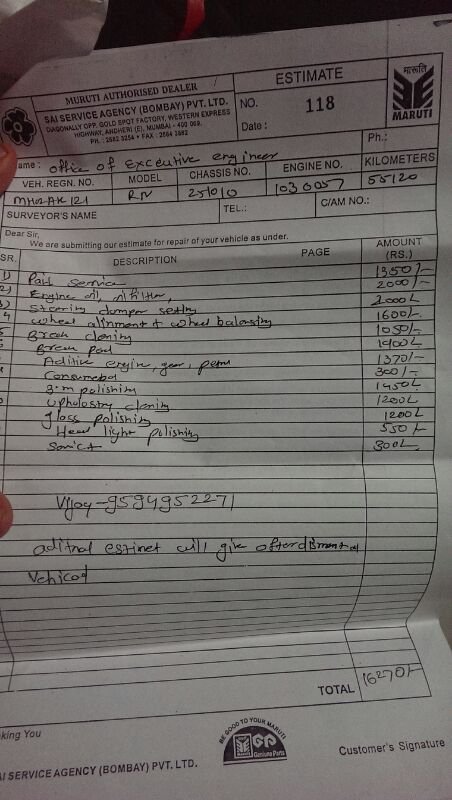 MURUTI AUTHORISED DEALER
SAI SERVICE AGENCY (BOMBAY) PVT. LTD.
DIAGONALLY OPP. GOLD SPOT FACTORY, WESTERN EXPRESS
HIGHWAY, ANDHERI (E), MUMBAI - 400 069.
PH.: 2682 3254 • FAX : 2684 2682
ESTIMATE
NO. 118
Date :
मारुति
MARUTI
Ph.:
ame : office of excecutive engineer
VEH. REGN. NO. MODEL CHASSIS NO. ENGINE NO. KILOMETERS
MH02AK121 RN 251010 1030057 55120
SURVEYOR'S NAME TEL.: C/AM NO.:
Dear Sir,
We are submitting our estimate for repair of your vehicle as under.
SR. DESCRIPTION PAGE AMOUNT (RS.)
1) Paid service 1350/-
2) Engine oil, oil filter, 2000/-
3) Steering damper setting 2000/-
4 wheel alinment & wheel balansting 1600/-
5 Break clening 1050/-
Break pad 1900/-
Aditive engine, gear, petrol 1370/-
Consumebel 300/-
3-m polishing 1450/-
upholostry clening 1200/-
gloss polishing 1200/-
Head light polishing 550/-
300/-
Vijay-9594952271
aditnal estinet will give after of
Vehicod
TOTAL 16270/-
king You
BE GOOD TO YOUR MARUTI
MARUTI GP
Genuine Parts
Customer's Signature
AI SERVICE AGENCY (BOMBAY) PVT. LTD.